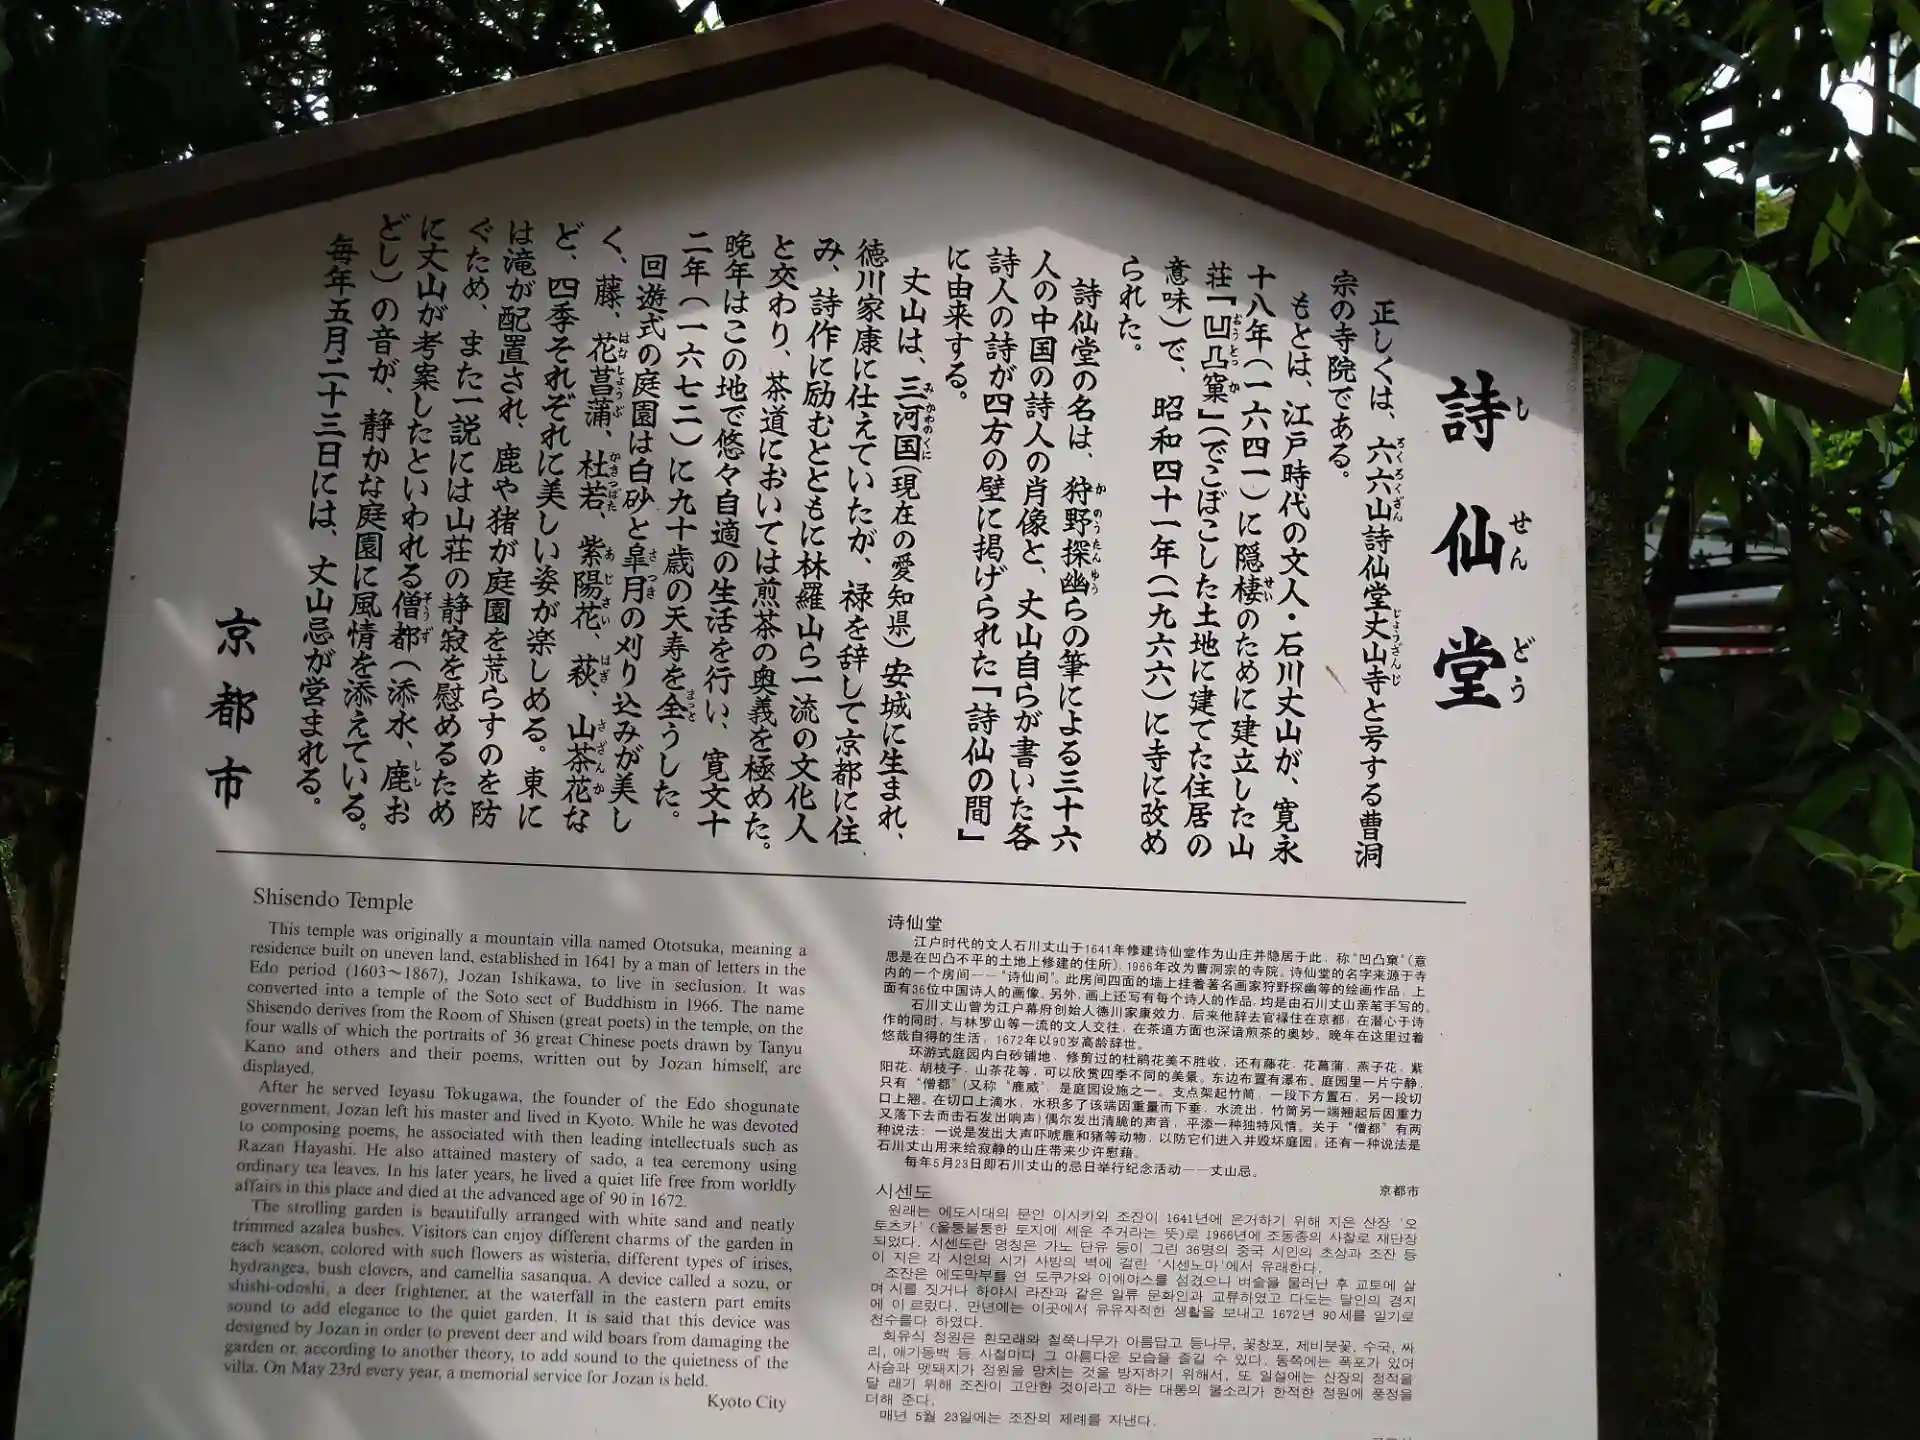 詩仙堂
しせんどう
正しくは、六六山詩仙堂丈山寺と号する曹洞
宗の寺院である。
もとは、江戸時代の文人・石川丈山が、寛永
十八年(一六四一)に隠棲のために建立した山
荘「凹凸窠」(でこぼこした土地に建てた住居の
意味)で、昭和四十一年(一九六六)に寺に改め
られた。
詩仙堂の名は、狩野探幽らの筆による三十六
人の中国の詩人の肖像と、丈山自らが書いた各
詩人の詩が四方の壁に掲げられた「詩仙の間」
に由来する。
丈山は、三河国(現在の愛知県)安城に生まれ、
徳川家康に仕えていたが、禄を辞して京都に住
み、詩作に励むとともに林羅山ら一流の文化人
と交わり、茶道においては煎茶の奥義を極めた。
晩年はこの地で悠々自適の生活を行い、寛文十
二年(一六七二)に九十歳の天寿を全うした。
回遊式の庭園は白砂と皐月の刈り込みが美し
く、藤、花菖蒲、杜若、紫陽花、萩、山茶花な
ど、四季それぞれに美しい姿が楽しめる。東に
は滝が配置され、鹿や猪が庭園を荒らすのを防
ぐため、また一説には山荘の静寂を慰めるため
に丈山が考案したといわれる僧都(添水、鹿お
どし)の音が、静かな庭園に風情を添えている。
毎年五月二十三日には、丈山忌が営まれる。
京都市
Shisendo Temple
This temple was originally a mountain villa named Ototsuka, meaning a
residence built on uneven land, established in 1641 by a man of letters in the
Edo period (1603~1867), Jozan Ishikawa, to live in seclusion. It was
converted into a temple of the Soto sect of Buddhism in 1966. The name
Shisendo derives from the Room of Shisen (great poets) in the temple, on the
four walls of which the portraits of 36 great Chinese poets drawn by Tanyu
Kano and others and their poems, written out by Jozan himself, are
displayed.
After he served Ieyasu Tokugawa, the founder of the Edo shogunate
government, Jozan left his master and lived in Kyoto. While he was devoted
to composing poems, he associated with then leading intellectuals such as
Razan Hayashi. He also attained mastery of sado, a tea ceremony using
ordinary tea leaves. In his later years, he lived a quiet life free from worldly
affairs in this place and died at the advanced age of 90 in 1672.
The strolling garden is beautifully arranged with white sand and neatly
trimmed azalea bushes. Visitors can enjoy different charms of the garden in
each season, colored with such flowers as wisteria, different types of irises,
hydrangea, bush clovers, and camellia sasanqua. A device called a sozu, or
shishi-odoshi, a deer frightener, at the waterfall in the eastern part emits
sound to add elegance to the quiet garden. It is said that this device was
designed by Jozan in order to prevent deer and wild boars from damaging the
garden or, according to another theory, to add sound to the quietness of the
villa. On May 23rd every year, a memorial service for Jozan is held.
Kyoto City
诗仙堂
江户时代的文人石川丈山于1641年修建诗仙堂作为山庄并隐居于此，称“凹凸窠”(意
思是在凹凸不平的土地上修建的住所)，1966年改为曹洞宗的寺院。诗仙堂的名字来源于寺
内的一个房间——“诗仙间”。此房间四面的墙上挂着著名画家狩野探幽等的绘画作品，上
面有36位中国诗人的画像。另外，画上还写有每个诗人的作品，均是由石川丈山亲笔手写的。
石川丈山曾为江户幕府创始人德川家康效力，后来他辞去官禄住在京都，在潜心于诗
作的同时，与林罗山等一流的文人交往，在茶道方面也深谙煎茶的奥妙。晚年在这里过着
悠哉自得的生活，1672年以90岁高龄辞世。
环游式庭园内白砂铺地，修剪过的杜鹃花美不胜收，还有藤花、花菖蒲、燕子花、紫
阳花、胡枝子、山茶花等，可以欣赏四季不同的美景。东边布置有瀑布。庭园里一片宁静，
只有“僧都”(又称“鹿威”，是庭园设施之一。支点架起竹筒，一段下方置石，另一段切
口上翘。在切口上滴水，水积多了该端因重量而下垂，水流出，竹筒另一端翘起后因重力
又落下去而击石发出响声)偶尔发出清脆的声音，平添一种独特风情。关于“僧都”有两
种说法：一说是发出大声吓唬鹿和猪等动物，以防它们进入并毁坏庭园。还有一种说法是
石川丈山用来给寂静的山庄带来少许慰藉。
每年5月23日即石川丈山的忌日举行纪念活动——丈山忌。
京都市
시센도
원래는 에도시대의 문인 이시카와 조잔이 1641년에 은거하기 위해 지은 산장 '오
토츠카' (울퉁불퉁한 토지에 세운 주거라는 뜻)로 1966년에 조동종의 사찰로 재단장
되었다. 시센도란 명칭은 가노 단유 등이 그린 36명의 중국 시인의 초상과 조잔 등
이 지은 각 시인의 시가 사방의 벽에 걸린 '시센노마'에서 유래한다.
조잔은 에도막부를 연 도쿠가와 이에야스를 섬겼으나 벼슬을 물러난 후 교토에 살
며 시를 짓거나 하야시 라잔과 같은 일류 문화인과 교류하였고 다도는 달인의 경지
에 이르렀다. 만년에는 이곳에서 유유자적한 생활을 보내고 1672년 90세를 일기로
천수를다 하였다.
회유식 정원은 흰모래와 철쭉나무가 아름답고 등나무, 꽃창포, 제비붓꽃, 수국, 싸
리, 애기동백 등 사철마다 그 아름다운 모습을 즐길 수 있다. 동쪽에는 폭포가 있어
사슴과 멧돼지가 정원을 망치는 것을 방지하기 위해서, 또 일설에는 산장의 정적을
달 래기 위해 조잔이 고안한 것이라고 하는 대통의 물소리가 한적한 정원에 풍정을
더해 준다.
매년 5월 23일에는 조잔의 제례를 지낸다.